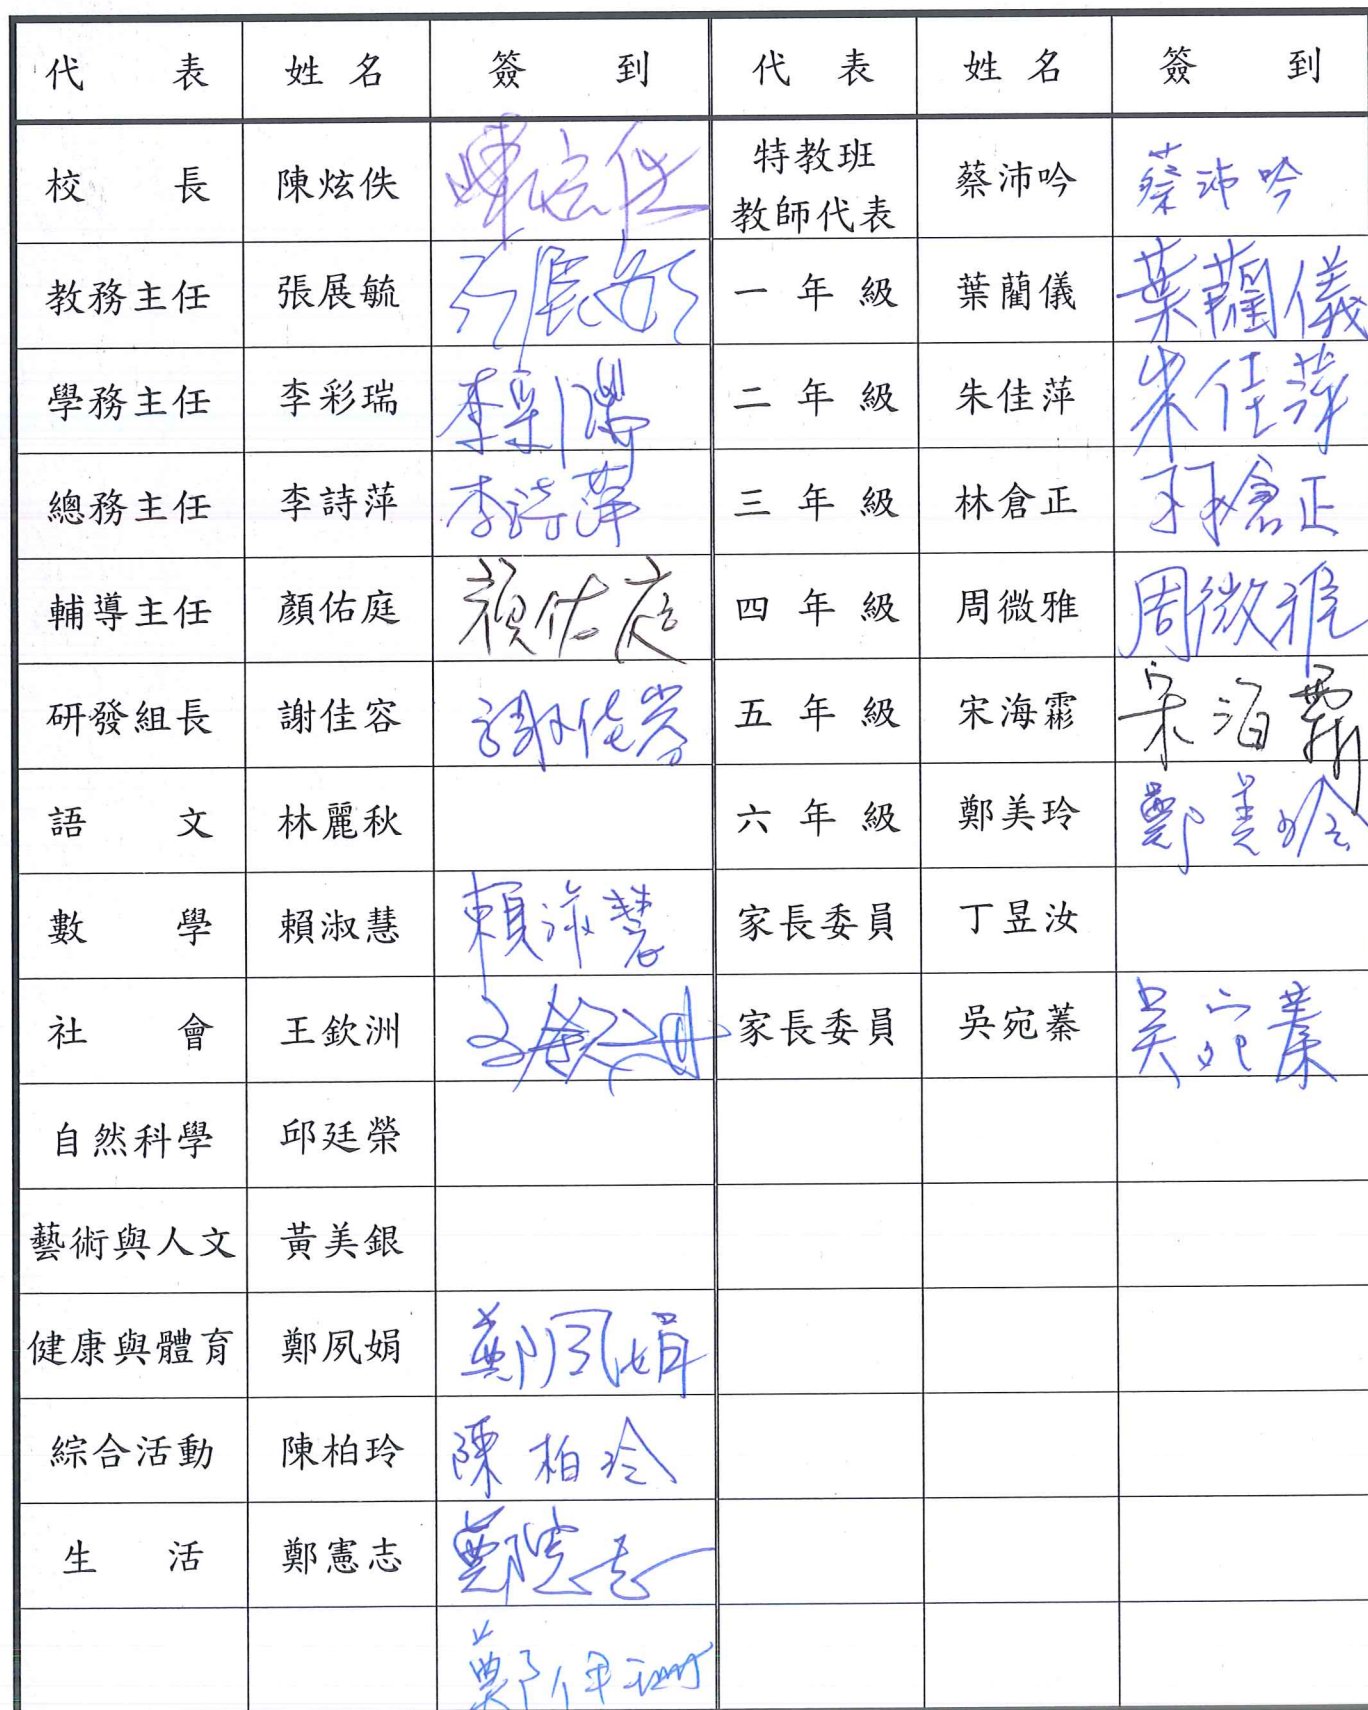 代表 姓名 簽到 代表 姓名 簽到
校長 陳炫佚 陳炫佚 特教班教師代表 蔡沛吟 蔡沛吟
教務主任 張展毓 張展毓 一年級 葉蘭儀 葉蘭儀
學務主任 李彩瑞 李彩瑞 二年級 朱佳萍 朱佳萍
總務主任 李詩萍 李詩萍 三年級 林倉正 林倉正
輔導主任 顏佑庭 顏佑庭 四年級 周微雅 周微雅
研發組長 謝佳容 謝佳容 五年級 宋海霦 宋海霦
語文 林麗秋 六年級 鄭美玲 鄭美玲
數學 賴淑慧 賴淑慧 家長委員 丁昱汝
社會 王欽洲 王欽洲 家長委員 吳宛蓁 吳宛蓁
自然科學 邱廷榮
藝術與人文 黃美銀
健康與體育 鄭夙娟 鄭夙娟
綜合活動 陳柏玲 陳柏玲
生活 鄭憲志 鄭憲志
鄭伊珊